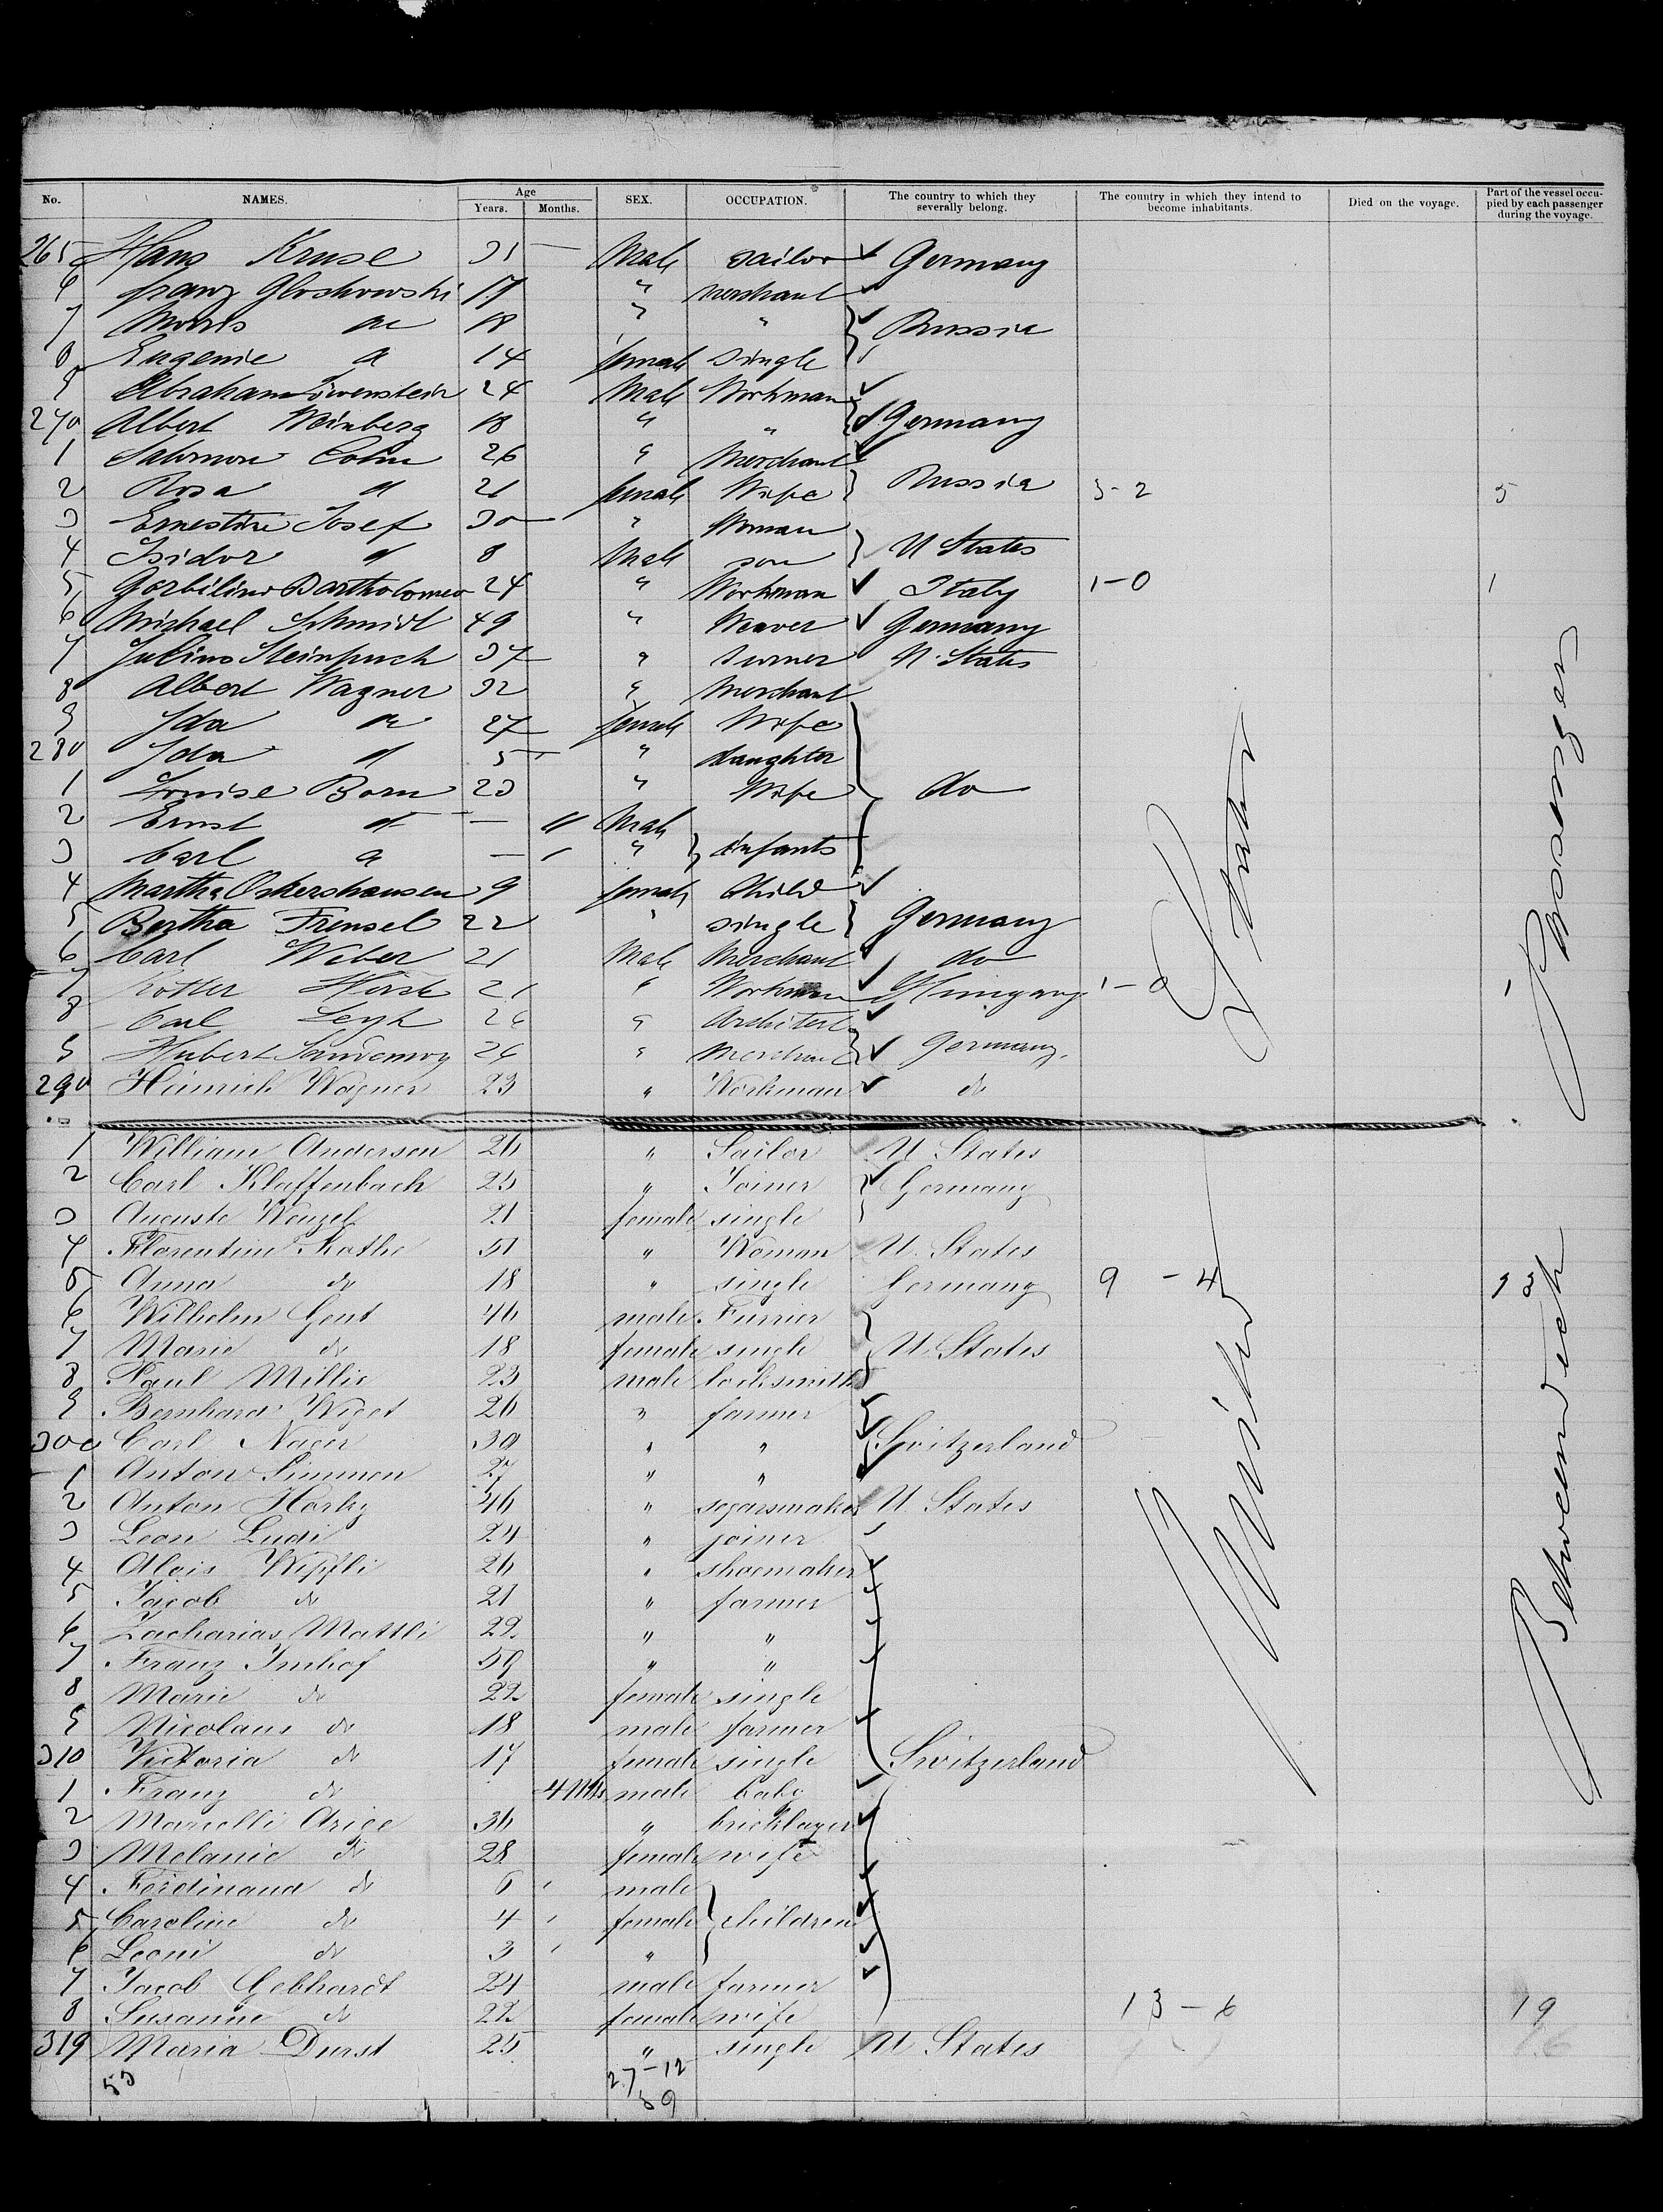 No. NAMES. Age Years. Months. SEX. OCCUPATION. The country to which they severally belong. The country in which they intend to become inhabitants. Died on the voyage. Part of the vessel occupied by each passenger during the voyage.
265 Hans Kruse 31 — Male sailor Germany
6 Franz Gloskowski 17 " merchant
7 Morris " 18 " " Russia
8 Eugenie " 14 female single
9 Abraham Löwenstein 24 Male Workman
270 Albert Weinberg 18 " " Germany
1 Salomon Cohn 26 " Merchant
2 Rosa " 21 female Wife Russia 3-2 5
3 Ernestine Josef 30 " Woman
4 Isidor " 8 Male son U States
5 Bartholomeo 24 " Workman Italy 1-0 1
6 Michael Schmidt 49 " Weaver Germany
7 Julius 37 " Turner U. States
8 Albert Wagner 32 " Merchant
9 Ida " 27 female Wife
280 Ida " 5 " daughter
1 Louise Born 23 " Wife do
2 Ernst " — 11 Male
3 Carl " — " infants
4 Martha 9 female Child
5 Bertha Frensel 22 " single Germany
6 Carl Weber 21 Male Merchant do
7 21 " Workman 1-0
8 Carl 26 " Architect
9 Hubert 26 " Merchant Germany.
290 Heinrich Wagner 23 " Workman do
1 William Anderson 26 " Sailor U States
2 Carl Klaffenbach 25 " Joiner Germany
3 Auguste Wenzel 21 female single
4 Florentine Kothe 51 " Woman U. States
5 Anna do 18 " single Germany 9 - 4 13
6 Wilhelm Gent 46 male Furrier
7 Marie do 18 female single U. States
8 Paul Millis 23 male locksmith
9 Bernhard Wiget 26 " farmer
300 Carl 30 " " Switzerland
1 Anton Simmen 27 " "
2 Anton Horky 46 " segarsmaker U. States
3 Leon Ludi 24 " joiner
4 Alois Wipfli 26 " shoemaker
5 Jacob do 21 " farmer
6 Zacharias Mattli 22 " "
7 Franz Imhof 59 " "
8 Marie do 22 female single
9 Nicolaus do 18 male farmer
310 Victoria do 17 female single Switzerland
1 Franz do 4 Mths male baby
2 Marcelli Arige 36 " bricklayer
3 Melanie do 28 female wife
4 Ferdinand do 6 male
5 Caroline do 4 female children
6 Leoni do 3 "
7 Jacob Gebhardt 24 male farmer
8 Susanne do 22 female wife 13-6 19
319 Maria Durst 25 " single U States
27-12
United States
Betweendeck Passenger